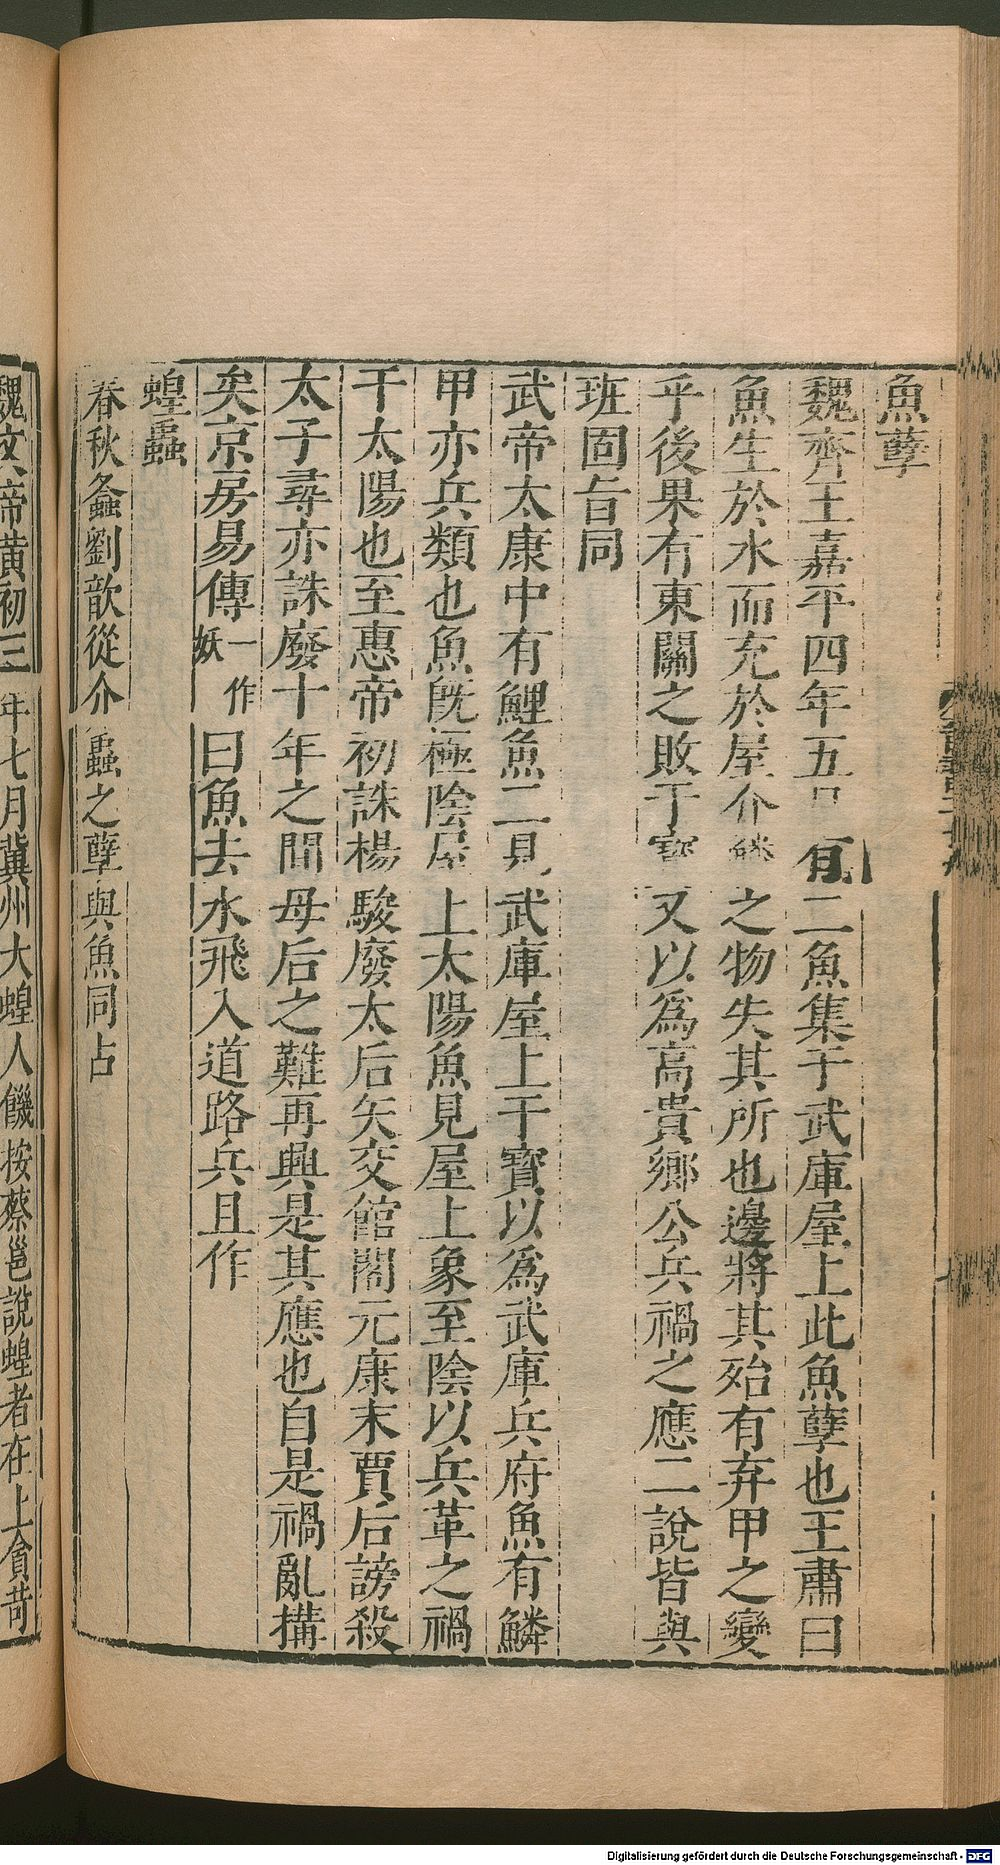 魚孽
魏齊王嘉平四年五月有二魚集于武庫屋上此魚孽也王肅曰
魚生於水而亢於屋介鱗之物失其所也邊將其殆有弃甲之變
乎後果有東關之敗干寳又以爲高貴鄉公兵禍之應二說皆與
班固旨同
武帝太康中有鯉魚二見武庫屋上干寳以爲武庫兵府魚有鱗
甲亦兵類也魚旣極陰屋上太陽魚見屋上象至陰以兵革之禍
干太陽也至惠帝初誅楊駿廢太后矢交館閣元康末賈后謗殺
太子尋亦誅廢十年之間母后之難再興是其應也自是禍亂搆
矣京房易傳一作妖曰魚去水飛入道路兵且作
蝗蟲
春秋螽劉歆從介蟲之孽與魚同占
魏文帝黃初三年七月冀州大蝗人饑按蔡邕說蝗者在上貪苛